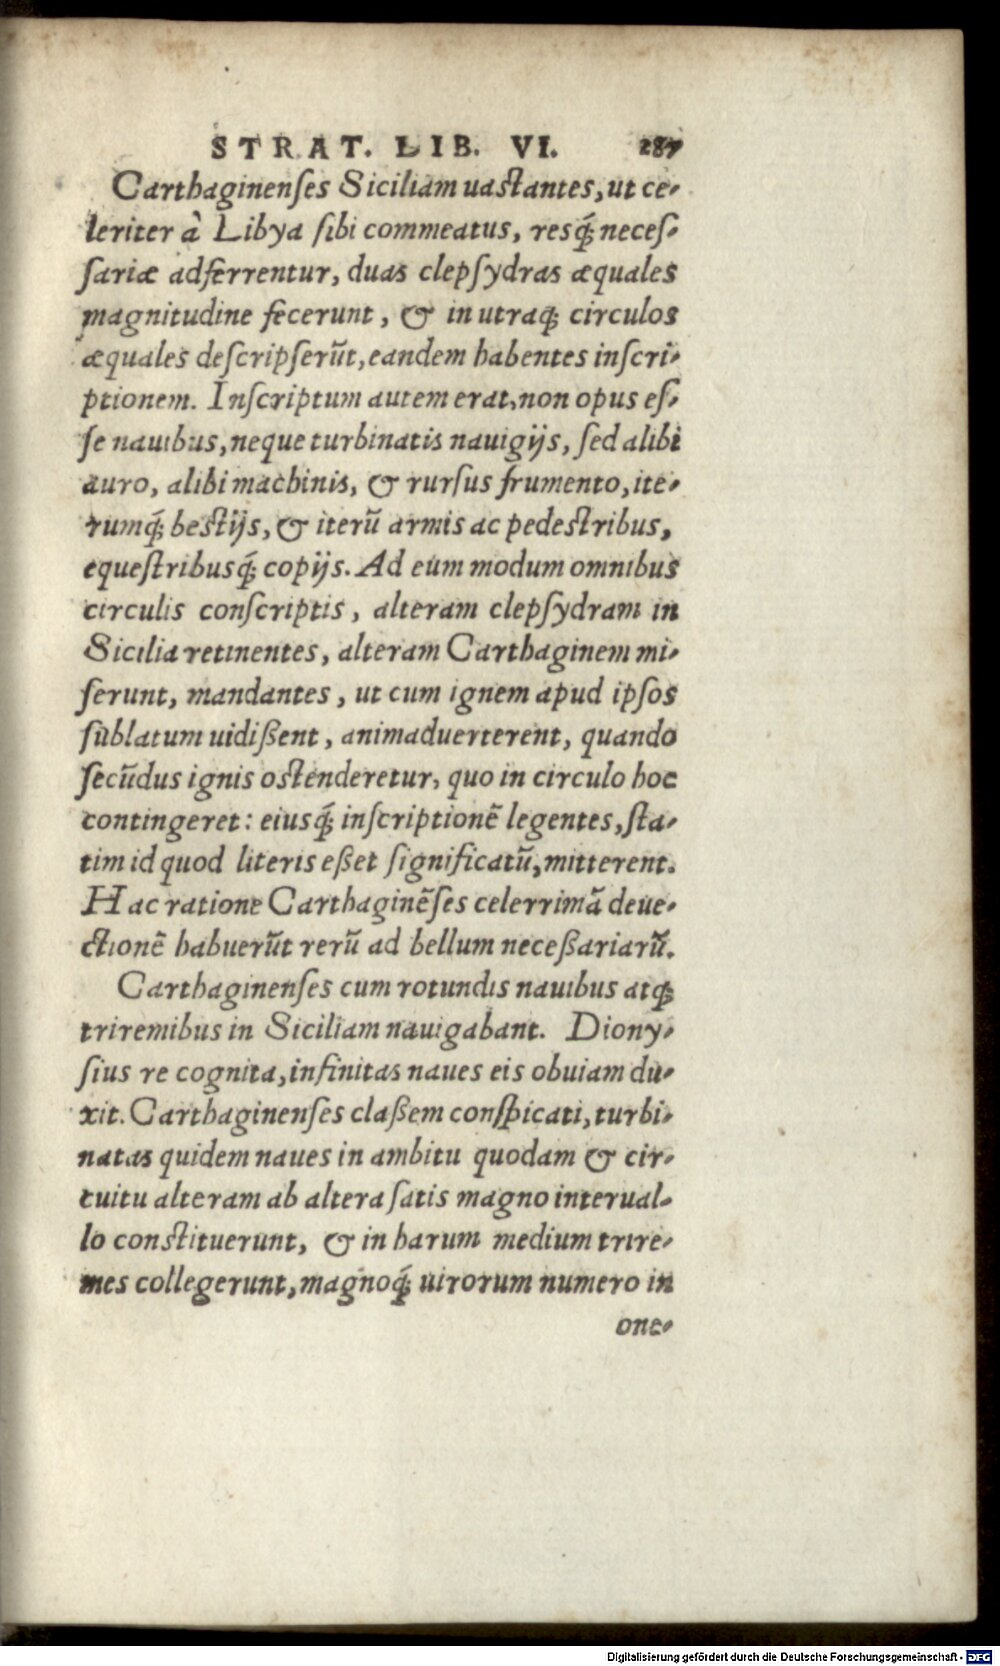 STRAT. LIB. VI. 287
Carthaginenſes Siciliam uaſtantes, ut ce-
leriter à Libya ſibi commeatus, resq́; neceſ-
ſariæ adferrentur, duas clepſydras æquales
magnitudine fecerunt, & in utraq; circulos
æquales deſcripſerũt, eandem habentes inſcri-
ptionem. Inſcriptum autem erat, non opus eſ-
ſe nauibus, neque turbinatis nauigijs, ſed alibi
auro, alibi machinis, & rurſus frumento, ite-
rumq́; beſtijs, & iterũ armis ac pedeſtribus,
equeſtribusq́; copijs. Ad eum modum omnibus
circulis conſcriptis, alteram clepſydram in
Sicilia retinentes, alteram Carthaginem mi-
ſerunt, mandantes, ut cum ignem apud ipſos
ſublatum uidißent, animaduerterent, quando
ſecũdus ignis oſtenderetur, quo in circulo hoc
contingeret: eiusq́; inſcriptionẽ legentes, ſta-
tim id quod literis eßet ſignificatũ, mitterent.
Hac ratione Carthaginẽſes celerrimã deue-
ctionẽ habuerũt rerũ ad bellum neceßariarũ.
Carthaginenſes cum rotundis nauibus atq;
triremibus in Siciliam nauigabant. Diony-
ſius re cognita, infinitas naues eis obuiam du-
xit. Carthaginenſes claßem conſpicati, turbi-
natas quidem naues in ambitu quodam & cir-
cuitu alteram ab altera ſatis magno interual-
lo conſtituerunt, & in harum medium trire-
mes collegerunt, magnoq́; uirorum numero in
one-
Digitalisierung gefördert durch die Deutsche Forschungsgemeinschaft - DFG